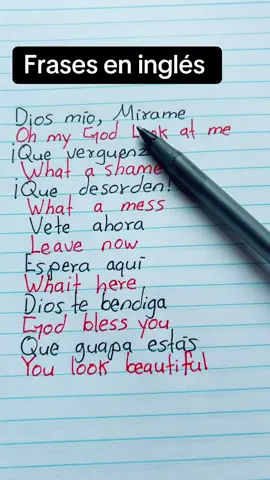 Frases en inglés
Dios mío, Mírame
Oh my God Look at me
¡Que verguenz
What a shame
¡Que desorden!
What a mess
Vete ahora
Leave now
Espera aquí
Whait here
Dios te bendiga
God bless you
Que guapa estás
You look beautiful